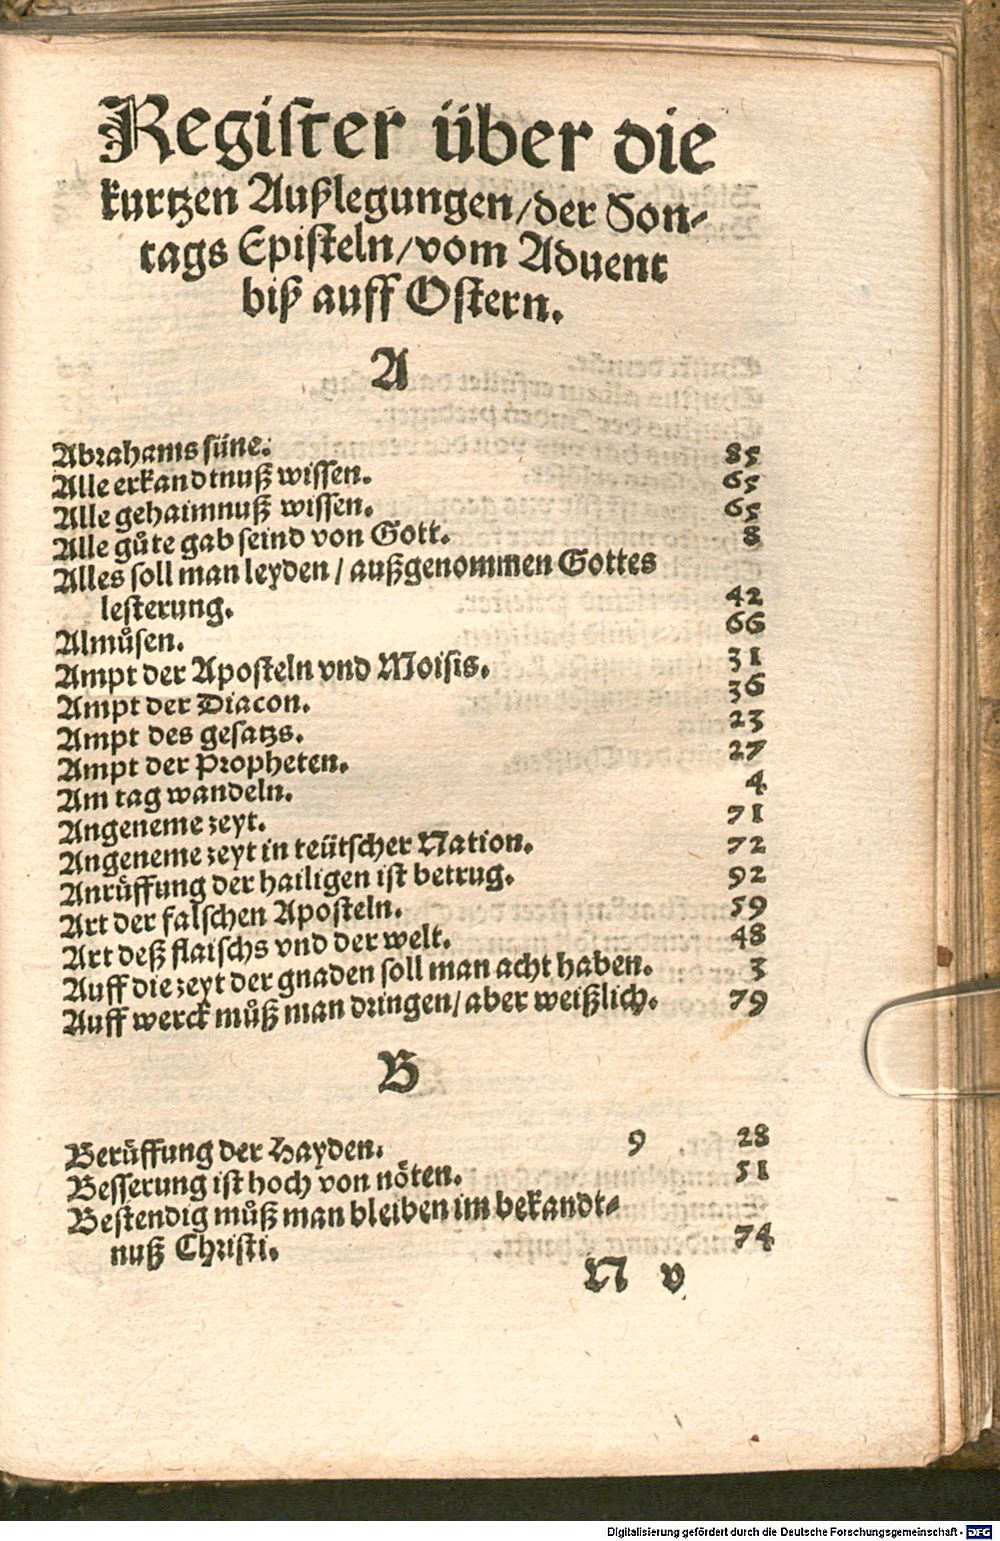 Register über die
kurtzen Außlegungen/der Son-
tags Episteln/vom Aduent
biß auff Ostern.
A
Abrahams süne. 85
Alle erkandtnuß wissen. 65
Alle gehaimnuß wissen. 65
Alle gůte gab seind von Gott. 8
Alles soll man leyden / außgenommen Gottes
lesterung. 42
Almůsen. 66
Ampt der Aposteln vnd Moisis. 31
Ampt der Diacon. 36
Ampt des gesatzs. 23
Ampt der Propheten. 27
Am tag wandeln. 4
Angeneme zeyt. 71
Angeneme zeyt in teütscher Nation. 72
Anrüffung der hailigen ist betrug. 92
Art der falschen Aposteln. 59
Art deß flaischs vnd der welt. 48
Auff die zeyt der gnaden soll man acht haben. 3
Auff werck můß man dringen/ aber weißlich. 79
B
Berüffung der Hayden. 9 28
Besserung ist hoch von nöten. 51
Bestendig můß man bleiben im bekandt-
nuß Christi. 74
N v
Digitalisierung gefördert durch die Deutsche Forschungsgemeinschaft - DFG